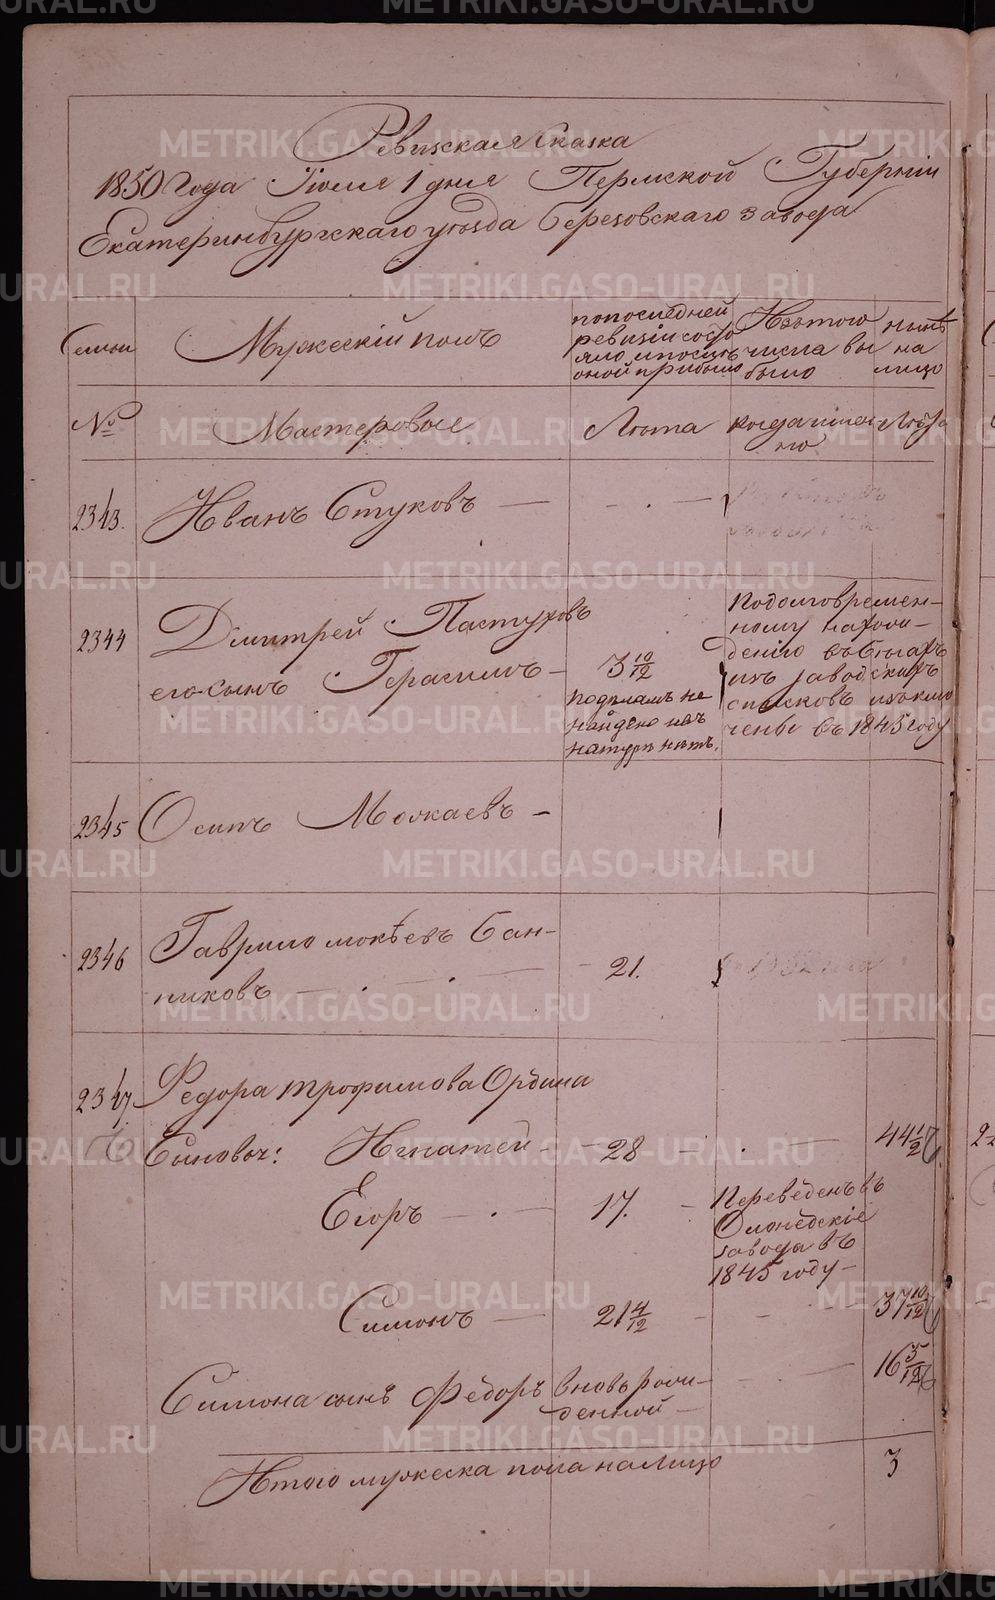 Ревизская Сказка
1850 Года Июля 1 дня Пермской Губернии
Екатеринбургскаго уѣзда Березовскаго завода
Семьи
Мужескій полъ
по последней
ревизіи состо
яло и после
оной прибыло
Изъ того
числа вы
было
нынѣ
на
лицо
№
Мастеровые
Лѣта
когда имен
но
Лѣта
2343.
Иванъ Стуковъ
2344
Дмитрей Пастуховъ
его сынъ Герасимъ
3 10/12
По дѣламъ не
найдено и въ
натурѣ нѣтъ.
По долговремен-
ному нахож-
денію въ бѣгахъ
изъ заводскихъ
списковъ исключ
чены въ 1845 году
2345
Осипъ Можаевъ
2346
Гаврило Мокѣевъ Бан-
никовъ
21.
2347.
Федора Трофимова Ордина
Сыновья: Игнатей
28
44 1/2
Егоръ
17.
Переведенъ въ
Олонедскіе
завода въ
1845 году
Симонъ
21 4/12
37 10/12
Симона сынъ Федоръ
вновь рож-
денной
16 5/12
Итого мужеска пола на лицо
3
METRIKI.GASO-URAL.RU